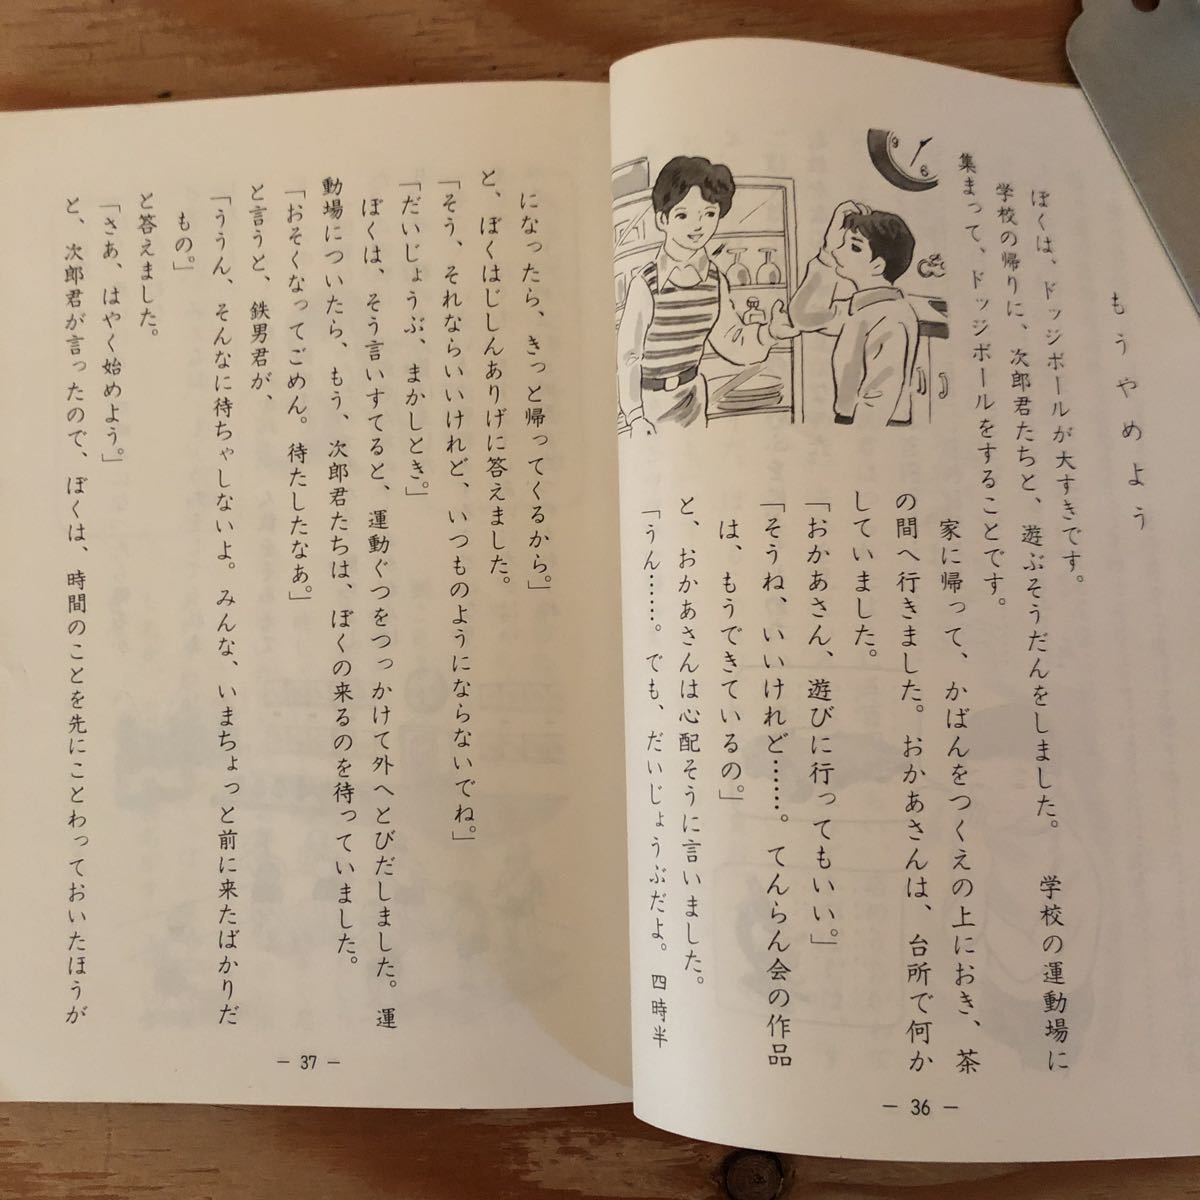 もうやめよう
ぼくは、ドッジボールが大すきです。
学校の帰りに、次郎君たちと、遊ぶそうだんをしました。学校の運動場に
集まって、ドッジボールをすることです。
家に帰って、かばんをつくえの上におき、茶
の間へ行きました。おかあさんは、台所で何か
していました。
「おかあさん、遊びに行ってもいい。」
「そうね、いいけれど……。てんらん会の作品
は、もうできているの。」
と、おかあさんは心配そうに言いました。
「うん……。でも、だいじょうぶだよ。四時半
9
6
— 36 —
になったら、きっと帰ってくるから。」
と、ぼくはじしんありげに答えました。
「そう、それならいいけれど、いつものようにならないでね。」
「だいじょうぶ、まかしとき。」
ぼくは、そう言いすてると、運動ぐつをつっかけて外へとびだしました。運
動場についたら、もう、次郎君たちは、ぼくの来るのを待っていました。
「おそくなってごめん。待たしたなぁ。」
と言うと、鉄男君が、
「ううん、そんなに待ちゃしないよ。みんな、いまちょっと前に来たばかりだ
もの。」
と答えました。
「さあ、はやく始めよう。」
と、次郎君が言ったので、ぼくは、時間のことを先にことわっておいたほうが
— 37 —